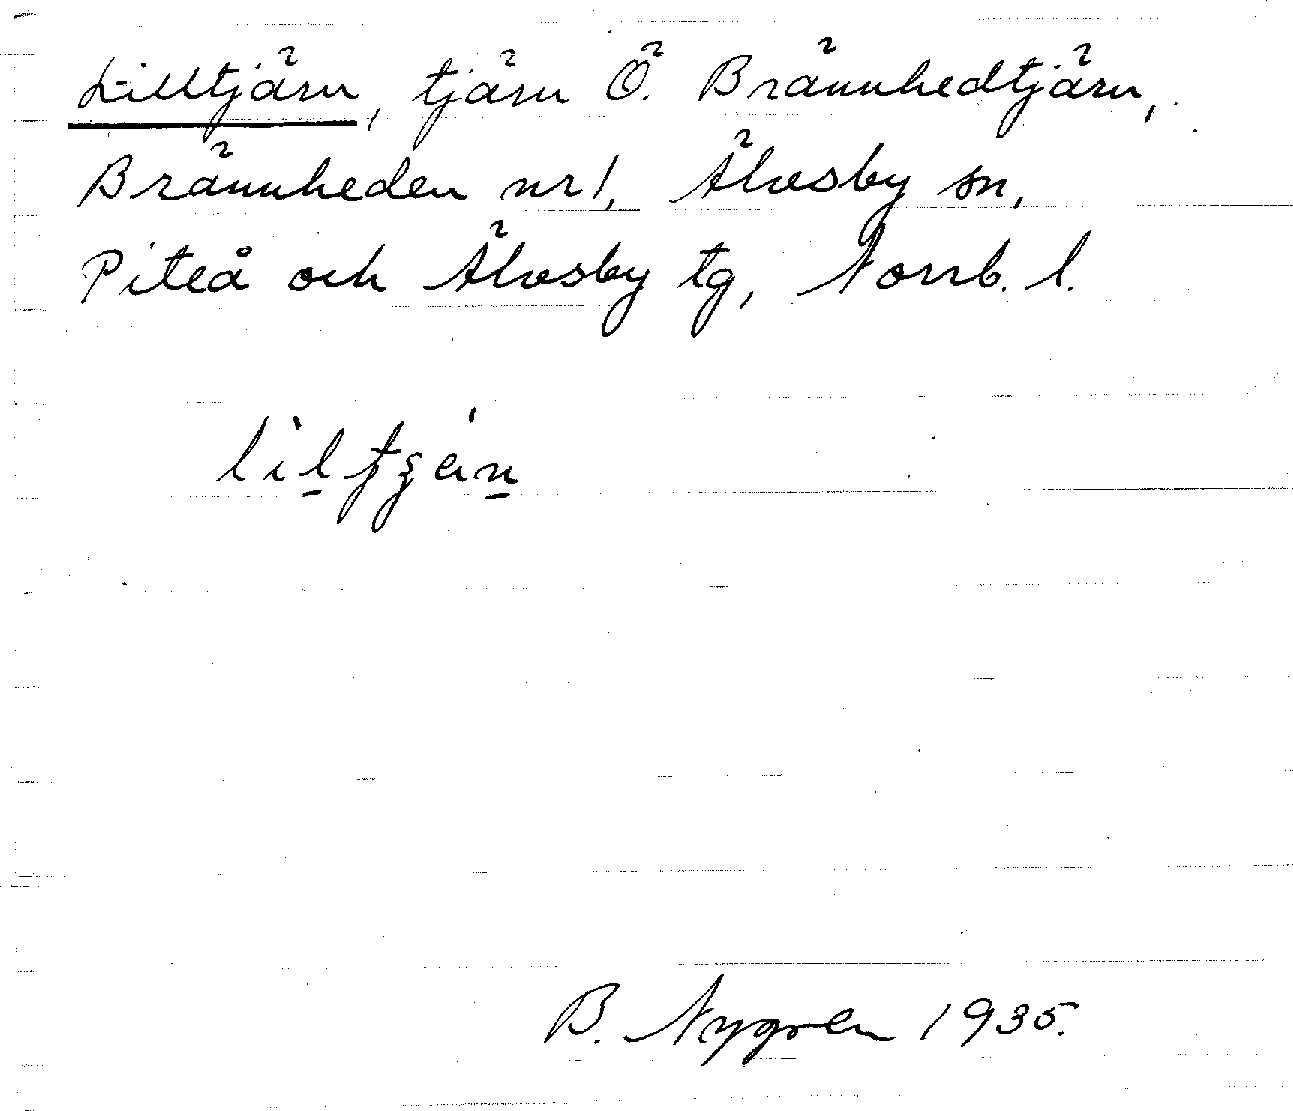 Lilltjärn, tjärn Ö. Brännhedtjärn,
Brännheden nr 1, Älvsby sn,
Piteå och Älvsby tg, Norrb. l.
B. Nygren 1935.